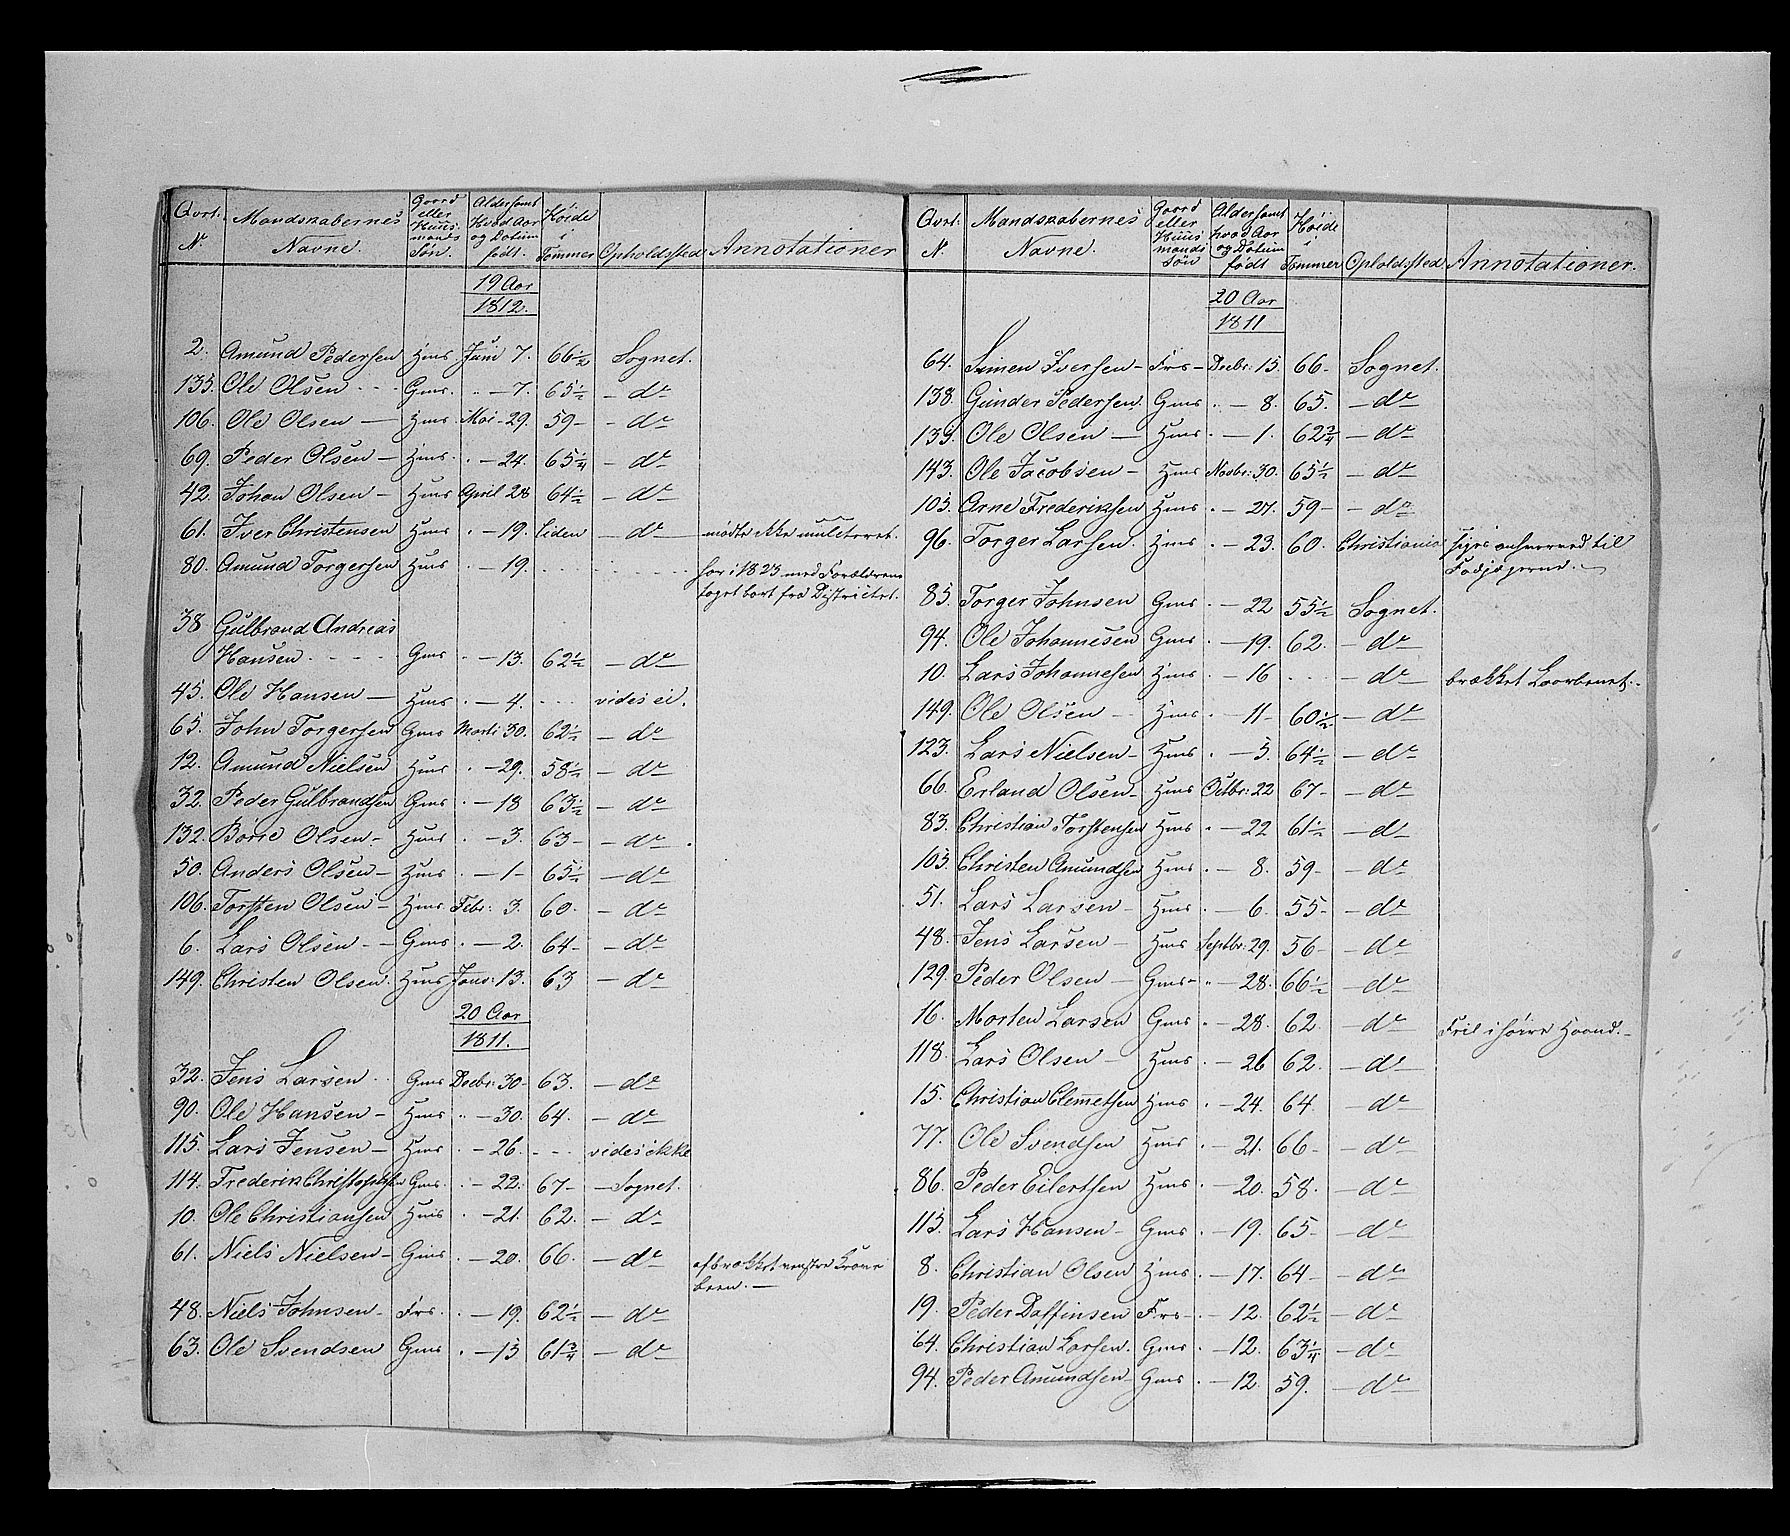 Qvrt. N. Mandskabernes Navne. Gaard eller Huusmands Søn. Alder samt Hvad Aar og Datum født. Høide i Tommer Opholdssted Annotationer
19 Aar
1812.
2. Amund Pedersen Hms Juni 7. 66½ Sognet.
135. Ole Olsen Gms. " — 7. 65½ — do
106. Ole Olsen — Hms Mai - 29. 59 - — do
69. Peder Olsen — Hms. " — 24. 65¼ — do
42. Johan Olsen — Hms April 28 64½ — do
61. Iver Christensen Hms " — 19. liden — do mødte ikke mulcteret.
80. Amund Torgersen Hms " — 19. har i 1823 med Forældrene
taget bort fra Districtet.
38 Gulbrand Andreas
Hansen Gms " — 13. 62½ — do
45. Ole Hansen — Hms " — 4. vides ei.
65. John Torgersen Gms Marti 30. 62½ — do
12. Amund Nielsen Hms " — 29. 58½ — do
32. Peder Gulbrandsen Gms " — 18 63½ — do
132. Borre Olsen - Hms " — 3. 63 - — do
50. Anders Olsen — Hms " — 1 - 65½ — do
106. Torsten Olsen — Hms Febr: 3. 60. — do
6. Lars Olsen — Gms " — 2. 64 - — do
149. Christen Olsen. Hms Janv: 13. 63 — do
20 Aar
1811.
32. Jens Larsen Gms Decbr: 30 - 63. — do
90. Ole Hansen — Hms " — 30. 64. — do
115. Lars Jensen — Hms " — 26. vides ikke
114. Frederik Christophersen Gms. " — 22. 67 - — Sognet.
10. Ole Christiansen Hms " — 21. 62. — do
61. Niels Nielsen — Gms " — 20. 66. — do afbrækket venstre Krave
been. —
48. Niels Johnsen - Frs. " — 19. 62½ — do
63. Ole Svendsen Gms " — 13 61¾ — do
Qvrt. N. Mandskabernes Navne. Gaard eller Huusmands Søn Alder samt hvad Aar og Datum født Høide i Tommer Opholdssted Annotationer.
20 Aar
1811
64. Simen Iversen — Frs — Decbr: 15. 66 - Sognet.
138. Gunder Pedersen Gms " — 8. 65. — do
139. Ole Olsen — Hms " — 1. 62¾ — do
143. Ole Jacobsen — Hms Novbr: 30. 65½ — do
105. Arne Frederiksen Hms " — 27. 59 - — do
96. Torger Larsen. Hms " — 23. 60. Christiania siges anhverved til
Fodjægerne. —
85. Torger Johnsen Gms " — 22 55½ Sognet.
94. Ole Johannesen Gms " — 19. 62. — do
10. Lars Johannesen Hms " — 16 — do brækket Laarbenet. -
149. Ole Olsen Hms " — 11 - 60½ — do
123. Lars Nielsen — Hms " — 5. 64½ — do
66. Erland Olsen — Hms Octbr: 22 67 - — do
83. Christian Torstensen Hms " — 22 61½ — do
103. Christen Amundsen Hms " — 8. 59 - — do
51. Lars Larsen — Hms " — 6. 55 - — do
48. Jens Larsen — Hms Septbr: 29. 56 - — do
129. Peder Olsen — Gms - " — 28. 66½ — do
16. Morten Larsen Gms " — 28. 62. — do Feil i høire Haand. -
118. Lars Olsen — Hms " — 26 62. — do
15. Christian Clemetsen Hms " — 24. 64. — do
77. Ole Svendsen Hms " — 21. 66 - — do
86. Peder Eilertsen Hms " — 20. 58. — do
113. Lars Hansen — Gms " — 19. 65 - — do
8. Christian Olsen Hms " — 17. 64 - — do
19. Peder Daffinsen Frs - " — 12. 62½ — do
64. Christian Larsen. Gms " — 12. 63¼ — do
94. Peder Amundsen — Gms " — 12. 59. — do